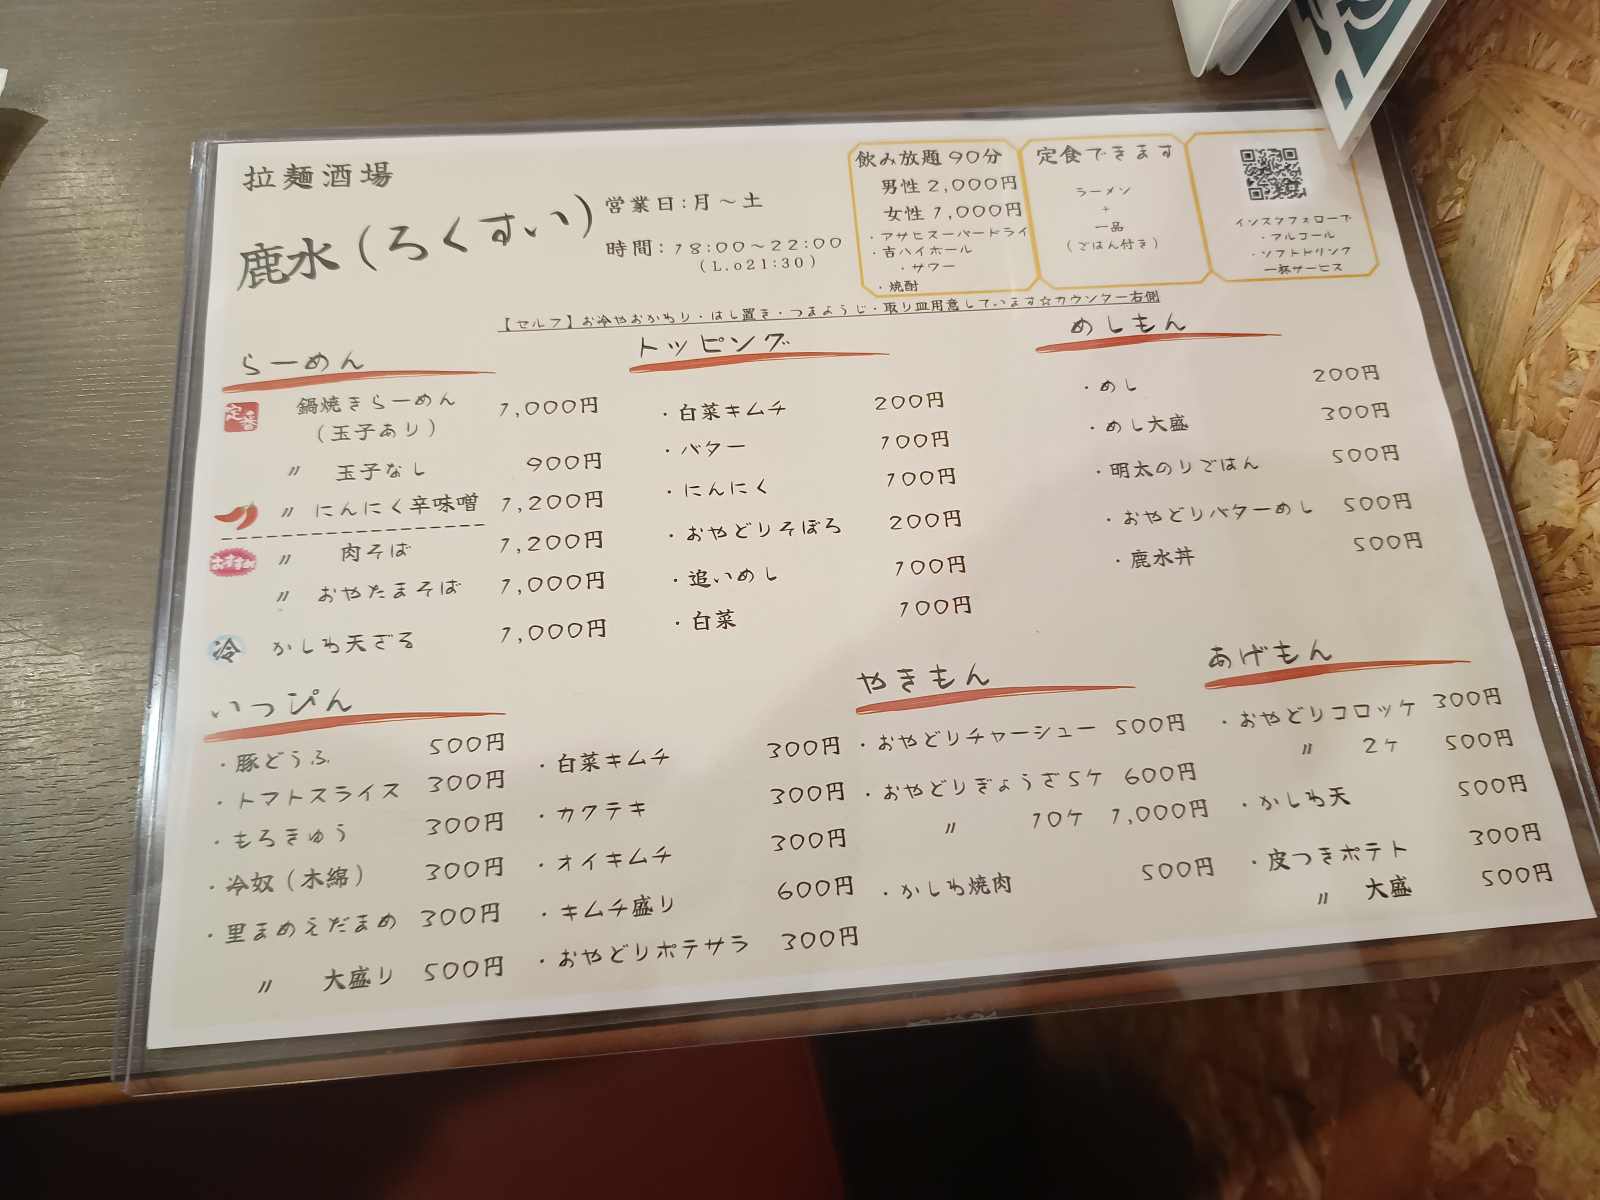 拉麺酒場
鹿水(ろくすい)
営業日:月～土
時間:18:00～22:00
(L.o21:30)
飲み放題90分
男性2,000円
女性1,000円
・アサヒスーパードライ
・吉ハイボール
・サワー
・焼酎
定食できます
ラーメン
+
一品
(ごはん付き)
インスタフォローで
・アルコール
・ソフトドリンク
一杯サービス
【セルフ】お冷やおかわり・はし置き・つまようじ・取り皿用意しています☆カウンター右側
らーめん
定番 鍋焼きらーめん 1,000円
(玉子あり)
〃 玉子なし 900円
〃 にんにく辛味噌 1,200円
おすすめ 〃 肉そば 1,200円
〃 おやたまそば 1,000円
冷 かしわ天ざる 1,000円
トッピング
・白菜キムチ 200円
・バター 100円
・にんにく 100円
・おやどりそぼろ 200円
・追いめし 100円
・白菜 100円
めしもん
・めし 200円
・めし大盛 300円
・明太のりごはん 500円
・おやどりバターめし 500円
・鹿水丼 500円
いっぴん
・豚どうふ 500円
・トマトスライス 300円
・もろきゅう 300円
・冷奴(木綿) 300円
・里まめえだまめ 300円
〃 大盛り 500円
・白菜キムチ 300円
・カクテキ 300円
・オイキムチ 300円
・キムチ盛り 600円
・おやどりポテサラ 300円
やきもん
・おやどりチャーシュー 500円
・おやどりぎょうざ5ケ 600円
〃 10ケ 1,000円
・かしわ焼肉 500円
あげもん
・おやどりコロッケ 300円
〃 2ケ 500円
・かしわ天 500円
・皮つきポテト 300円
〃 大盛 500円